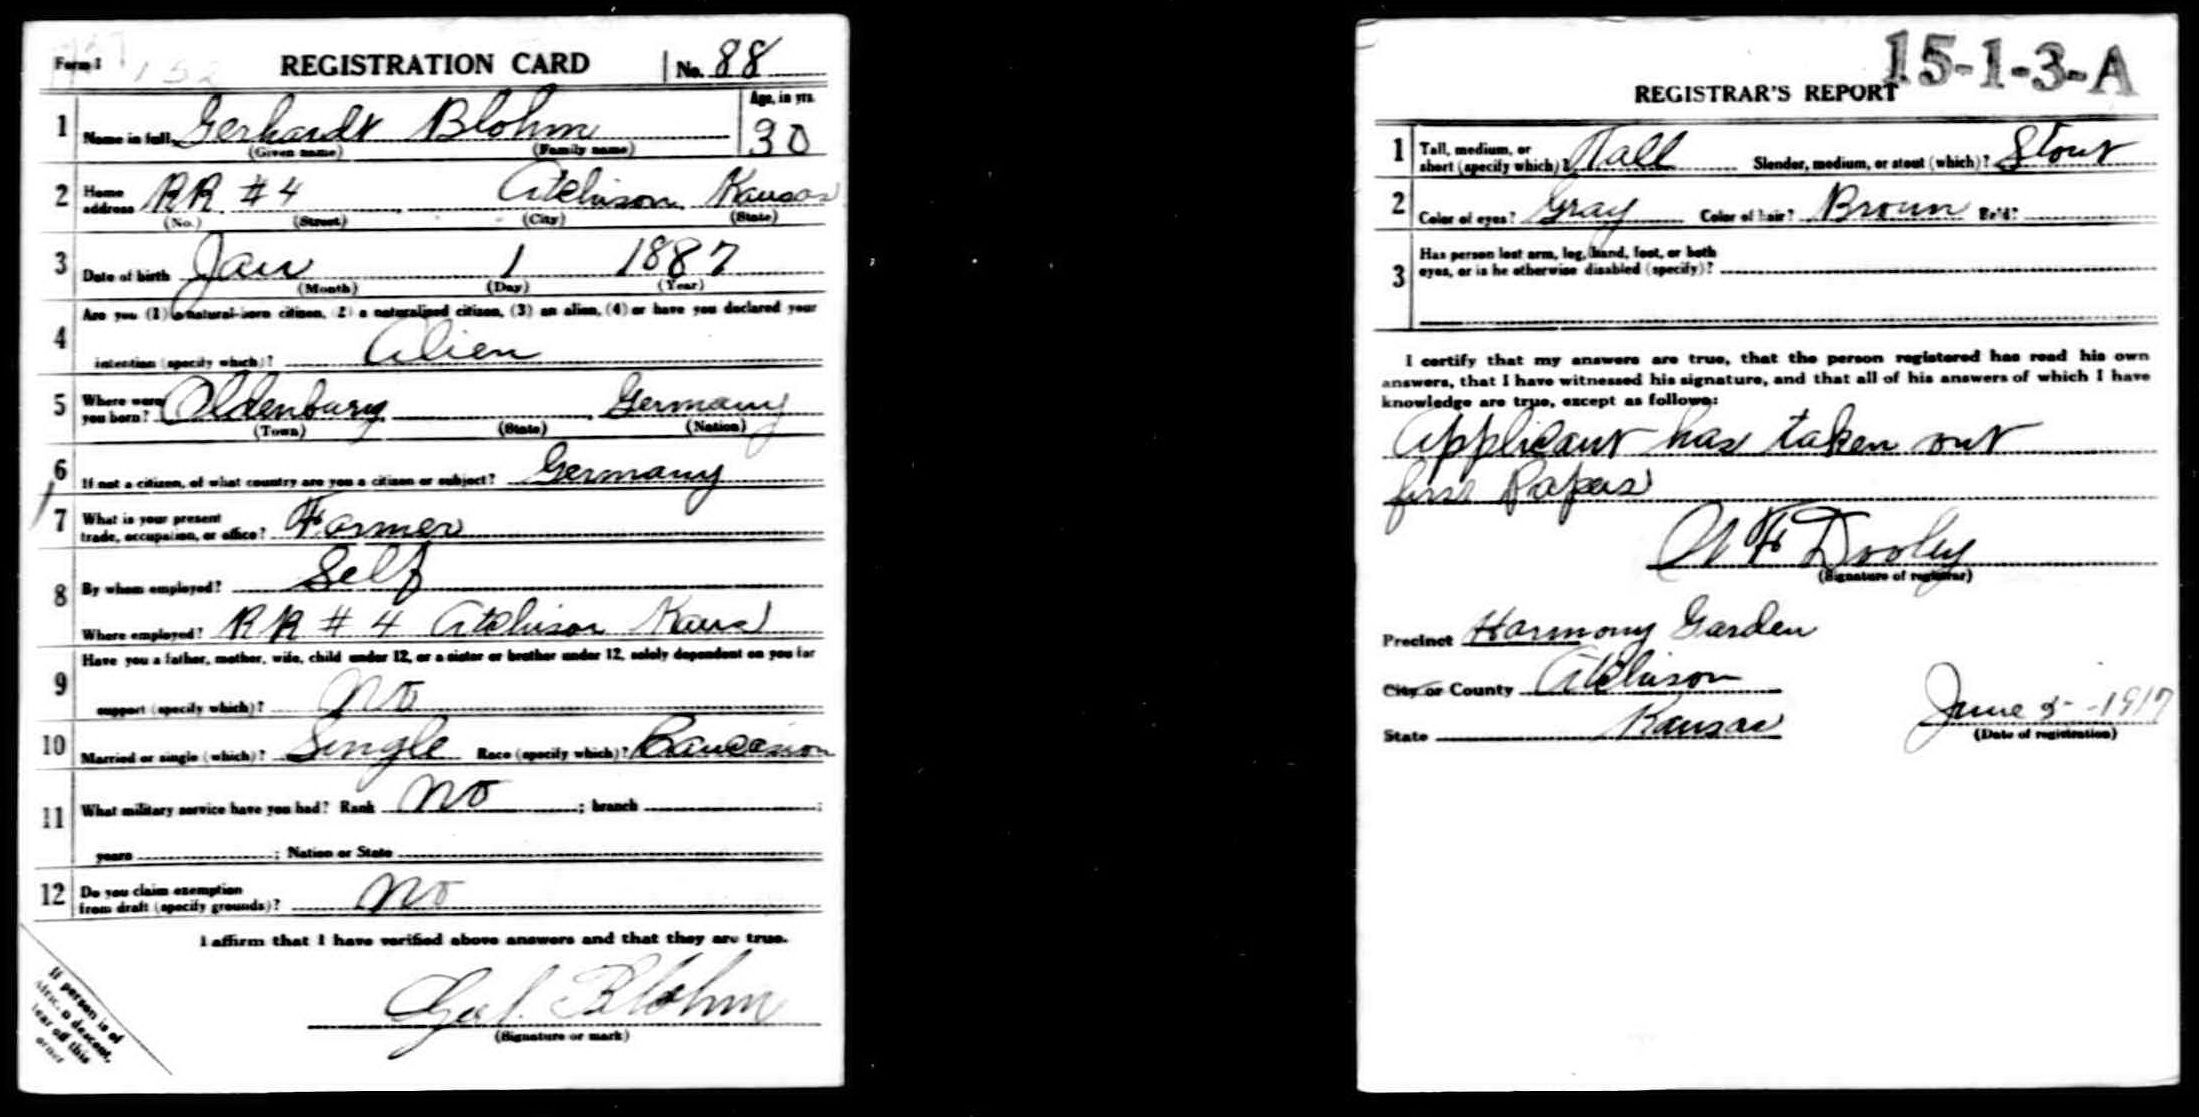 Form 1 REGISTRATION CARD No. 88
1 Name in full Gerhardt Blohm Age, in yrs. 30
(Given name) (Family name)
2 Home address RR #4 Atchison Kansas
(No.) (Street) (City) (State)
3 Date of birth Jan 1 1887
(Month) (Day) (Year)
4 Are you (1) a natural-born citizen, (2) a naturalized citizen, (3) an alien, (4) or have you declared your
intention (specify which)? Alien
5 Where were you born? Oldenburg, Germany
(Town) (State) (Nation)
6 If not a citizen, of what country are you a citizen or subject? Germany
7 What is your present trade, occupation, or office? Farmer
8 By whom employed? Self
Where employed? RR #4 Atchison Kans
9 Have you a father, mother, wife, child under 12, or a sister or brother under 12, solely dependent on you for
support (specify which)? No
10 Married or single (which)? Single Race (specify which)? Caucasion
11 What military service have you had? Rank No ; branch ;
years ; Nation or State
12 Do you claim exemption from draft (specify grounds)? No
I affirm that I have verified above answers and that they are true.
Blohm
(Signature or mark)
If person is of
African descent,
tear off this
corner
15-1-3-A
REGISTRAR'S REPORT
1 Tall, medium, or short (specify which)? Tall Slender, medium, or stout (which)? Stout
2 Color of eyes? Gray Color of hair? Brown Bald?
3 Has person lost arm, leg, hand, foot, or both
eyes, or is he otherwise disabled (specify)?
I certify that my answers are true, that the person registered has read his own
answers, that I have witnessed his signature, and that all of his answers of which I have
knowledge are true, except as follows:
Applicant has taken out
first Papers
F Dooley
(Signature of registrar)
Precinct Harmony Garden
City or County Atchison
State Kansas June 5 - 1917
(Date of registration)